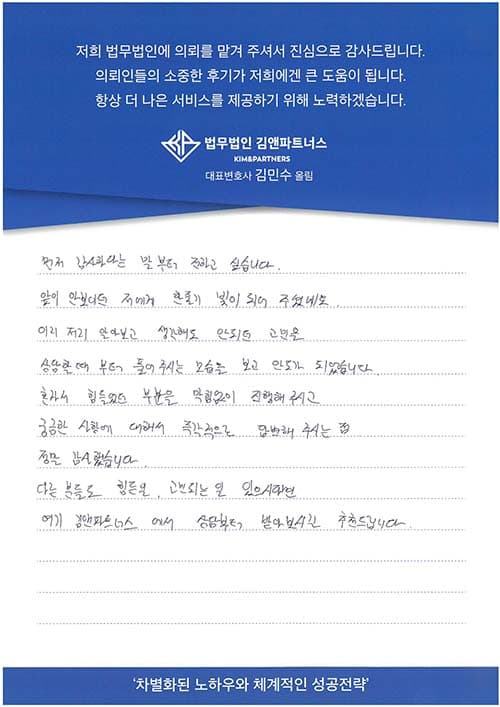 저희 법무법인에 의뢰를 맡겨 주셔서 진심으로 감사드립니다.
의뢰인들의 소중한 후기가 저희에겐 큰 도움이 됩니다.
항상 더 나은 서비스를 제공하기 위해 노력하겠습니다.
법무법인 김앤파트너스
KIM&PARTNERS
대표변호사 김민수 올림
먼저 감사하다는 말 부터 전하고 싶습니다.
앞이 안보이던 저에게 한줄기 빛이 되어 주셨네요.
이리 저리 알아보고 생각해도 안되던 고민을
상담할 때 부터 풀어주시는 모습을 보고 안도가 되었습니다.
혼자서 힘들었던 부분을 막힘없이 진행해 주시고
궁금한 사항에 대해서 즉각적으로 답변해 주시는 점
정말 감사했습니다.
다른 분들도 힘든일, 고민되는 일 있으시다면
여기 김앤파트너스 에서 상담부터 받아보시길 추천드립니다.
'차별화된 노하우와 체계적인 성공전략'